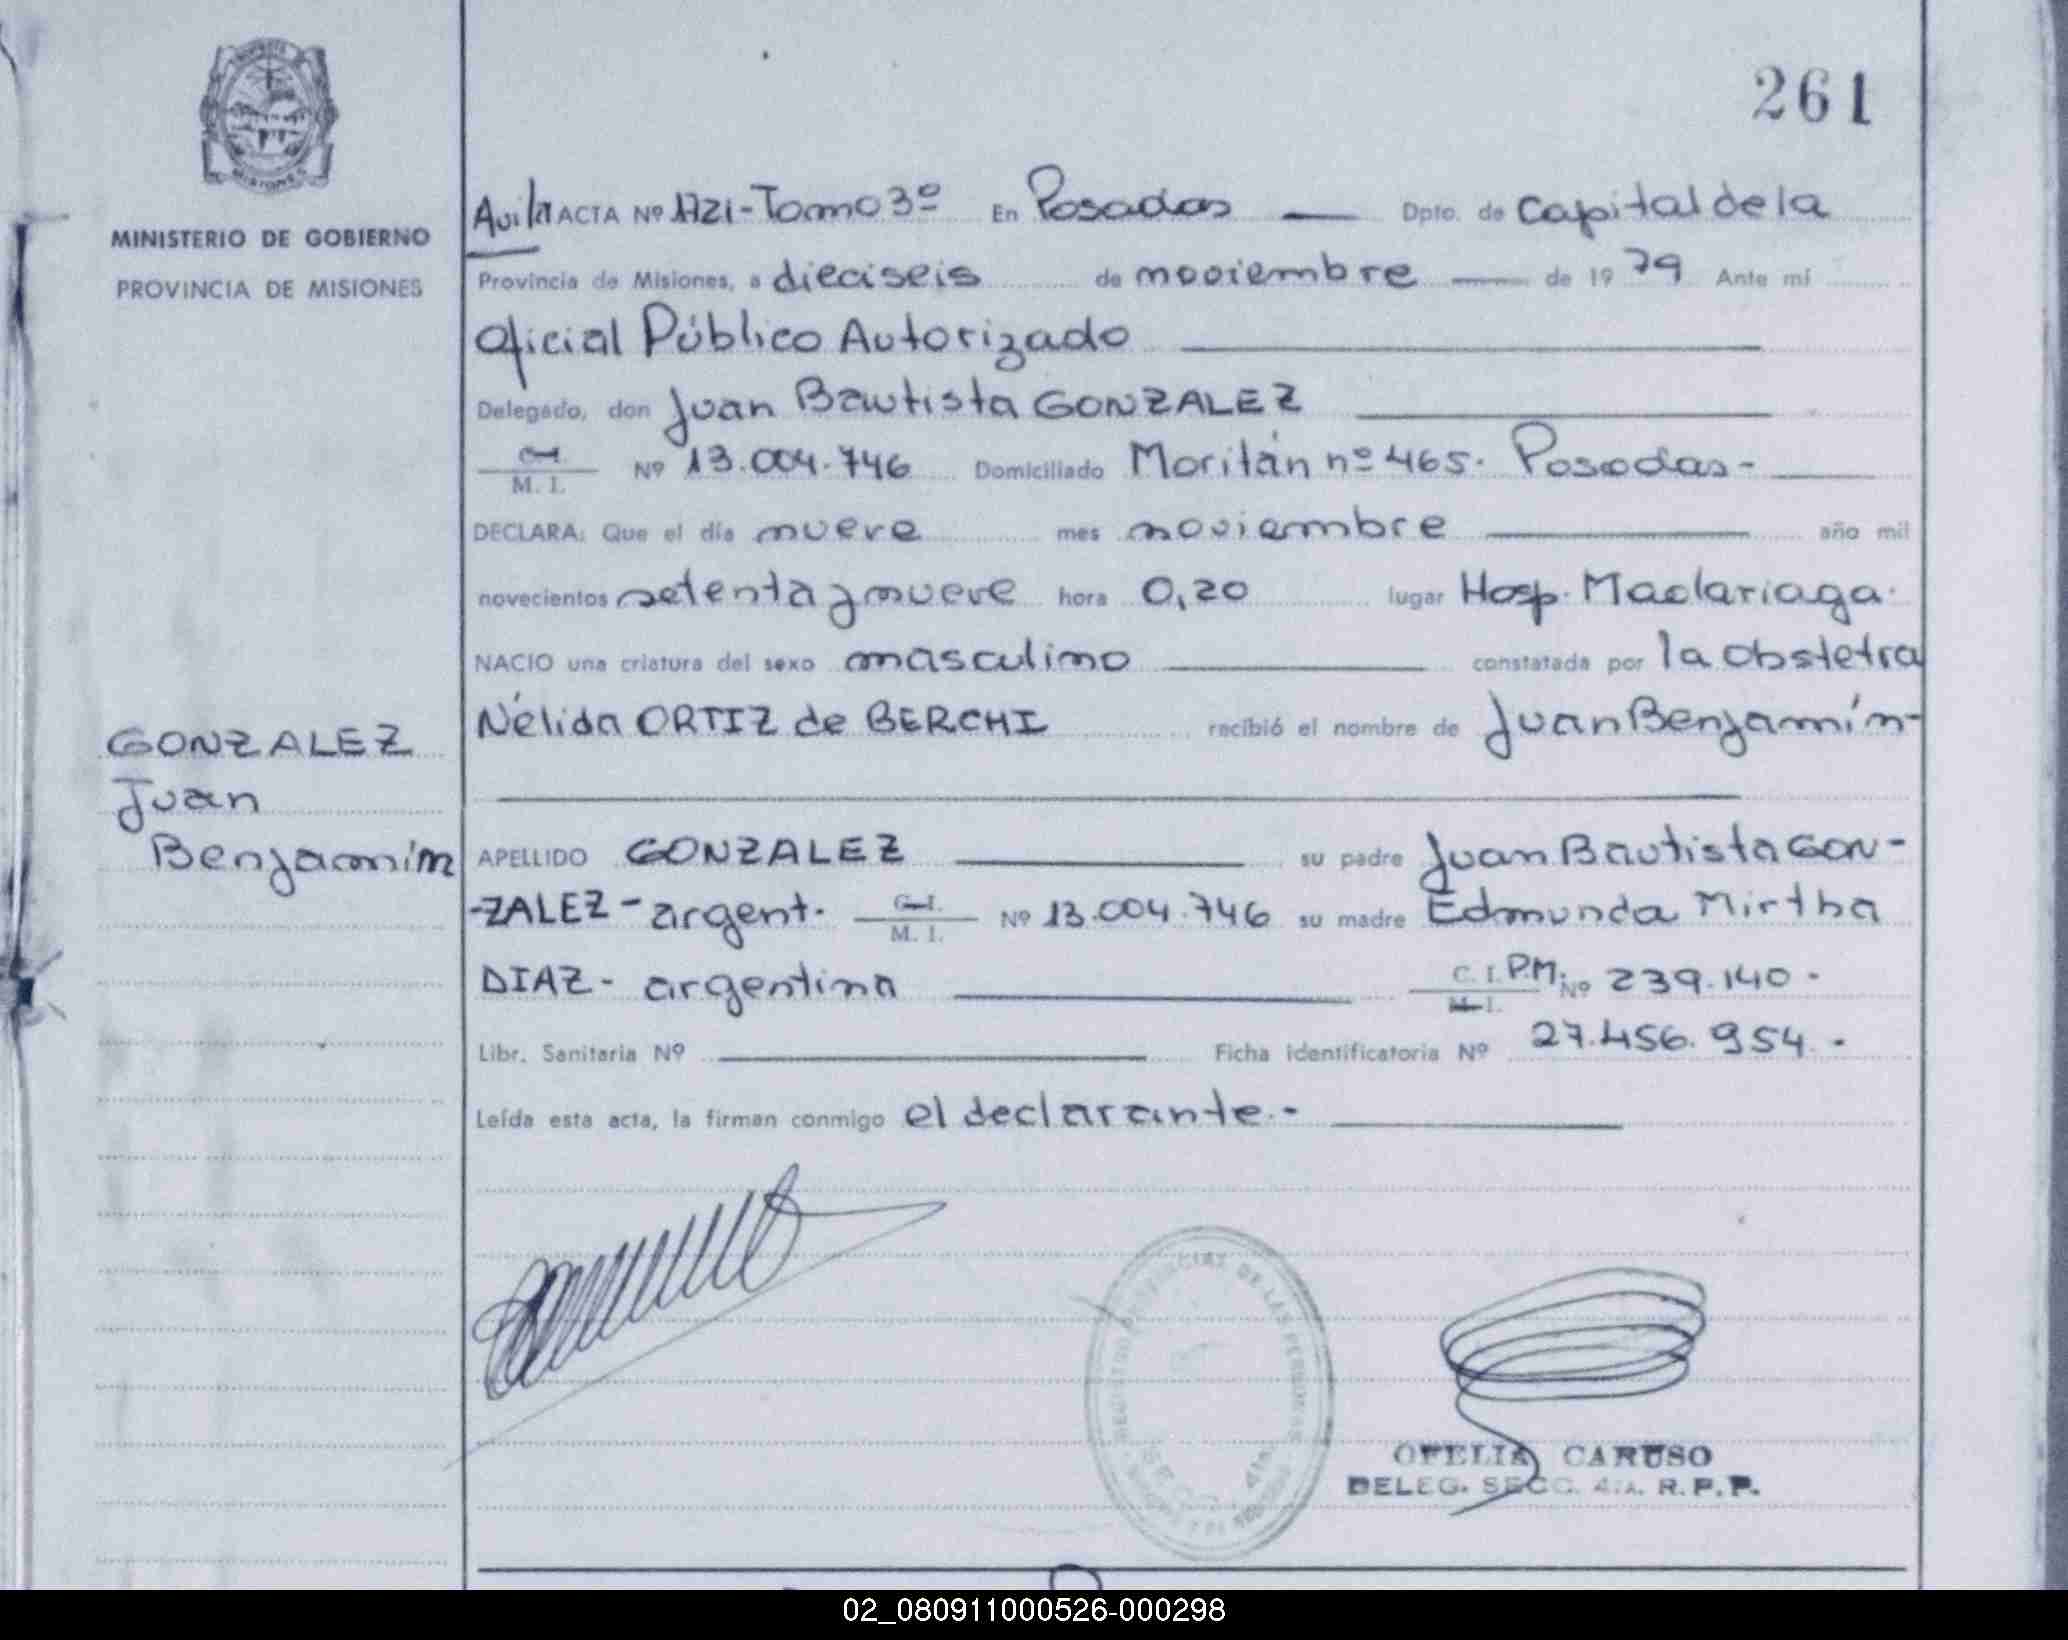 261
MINISTERIO DE GOBIERNO
PROVINCIA DE MISIONES
GONZALEZ
Juan
Benjamín
Avila ACTA Nº 1721-Tomo 3º En Posadas Dpto. de Capital de la
Provincia de Misiones, a dieciseis de noviembre de 19 79 Ante mí
Oficial Público Autorizado
Delegado, don Juan Bautista GONZALEZ
C. I.
M. I. Nº 13.004.746 Domiciliado Moritán nº 465. Posadas-
DECLARA: Que el día nueve mes noviembre año mil
novecientos setenta y nueve hora 0,20 lugar Hosp. Madariaga.
NACIO una criatura del sexo masculino constatada por la obstetra
Nélida ORTIZ de BERCHI recibió el nombre de Juan Benjamín-
APELLIDO GONZALEZ su padre Juan Bautista GON-
-ZALEZ- argent. C. I.
M. I. Nº 13.004.746 su madre Edmunda Mirtha
DIAZ- argentina C. I. P.M.
M. I. Nº 239.140.
Libr. Sanitaria Nº Ficha identificatoria Nº 27.456.954.
Leída esta acta, la firman conmigo el declarante.-
REGISTRO PROVINCIAL DE LAS PERSONAS
SECC. 4ta.
OFELIA CARUSO
DELEG. SECC. 4ta. R.P.P.
02_080911000526-000298